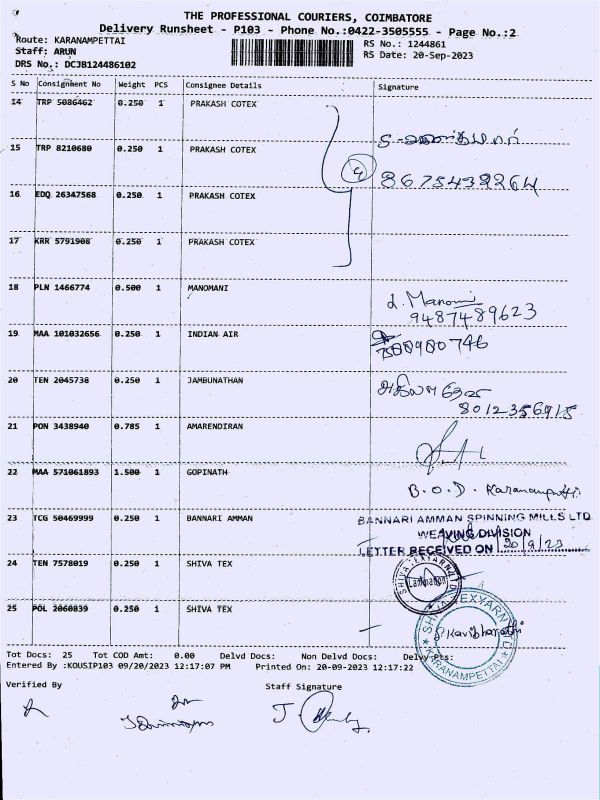 THE PROFESSIONAL COURIERS, COIMBATORE
Delivery Runsheet - P103 - Phone No.:0422-3505555 - Page No.:2
Route: KARANAMPETTAI RS No.: 1244861
Staff: ARUN RS Date: 20-Sep-2023
DRS No.: DCJB124486102
S No Consignment No Weight PCS Consignee Details Signature
14 TRP 5086462 0.250 1 PRAKASH COTEX
15 TRP 8210680 0.250 1 PRAKASH COTEX
4 8675439264
16 EDQ 26347568 0.250 1 PRAKASH COTEX
17 KRR 5791908 0.250 1 PRAKASH COTEX
18 PLN 1466774 0.500 1 MANOMANI
9487489623
19 MAA 101032656 0.250 1 INDIAN AIR
20 TEN 2045738 0.250 1 JAMBUNATHAN
8012356915
21 PON 3438940 0.785 1 AMARENDIRAN
22 MAA 571061893 1.500 1 GOPINATH
B.O.D. Karanampatti
23 TCG 50469999 0.250 1 BANNARI AMMAN BANNARI AMMAN SPINNING MILLS LTD
WEAVING DIVISION
LETTER RECEIVED ON 20/9/23
24 TEN 7578019 0.250 1 SHIVA TEX
25 POL 2060839 0.250 1 SHIVA TEX
SHIVA TEXYARN LTD
KARANAMPETTAI
Tot Docs: 25 Tot COD Amt: 0.00 Delvd Docs: Non Delvd Docs: Delvy Pts:
Entered By :KOUSIP103 09/20/2023 12:17:07 PM Printed On: 20-09-2023 12:17:22
Verified By Staff Signature